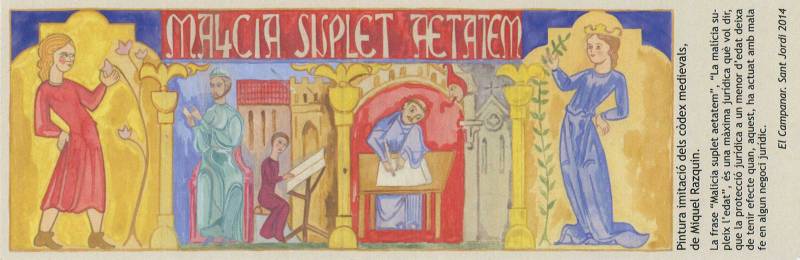 MALICIA SUPLET ÆTATEM
Pintura imitació dels còdex medievals,
de Miquel Razquin.
La frase “Malicia suplet aetatem”, “La malícia su-
pleix l'edat”, és una màxima jurídica que vol dir,
que la protecció jurídica a un menor d'edat deixa
de tenir efecte quan, aquest, ha actuat amb mala
fe en algun negoci jurídic.
El Campanar. Sant Jordi 2014